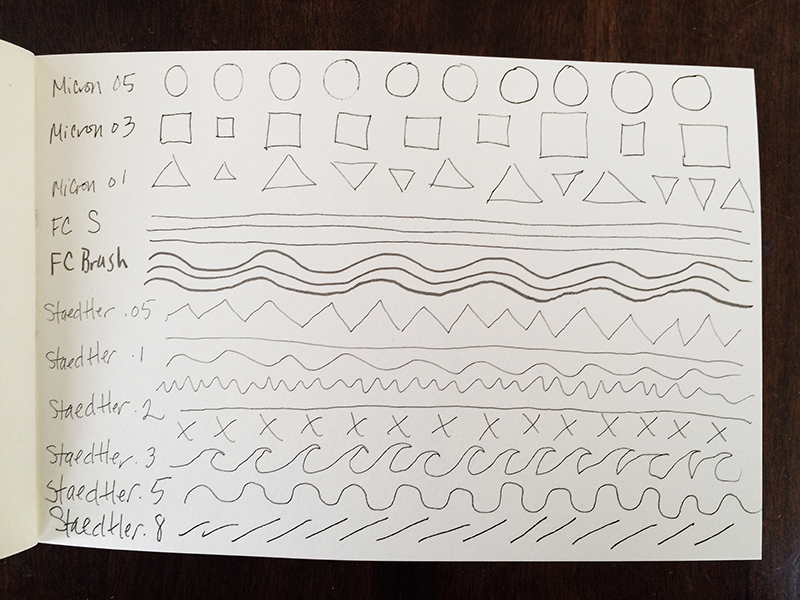 Micron 05
Micron 03
Micron 01
FC S
FC Brush
Staedtler .05
Staedtler .1
Staedtler .2
Staedtler .3
Staedtler .5
Staedtler .8